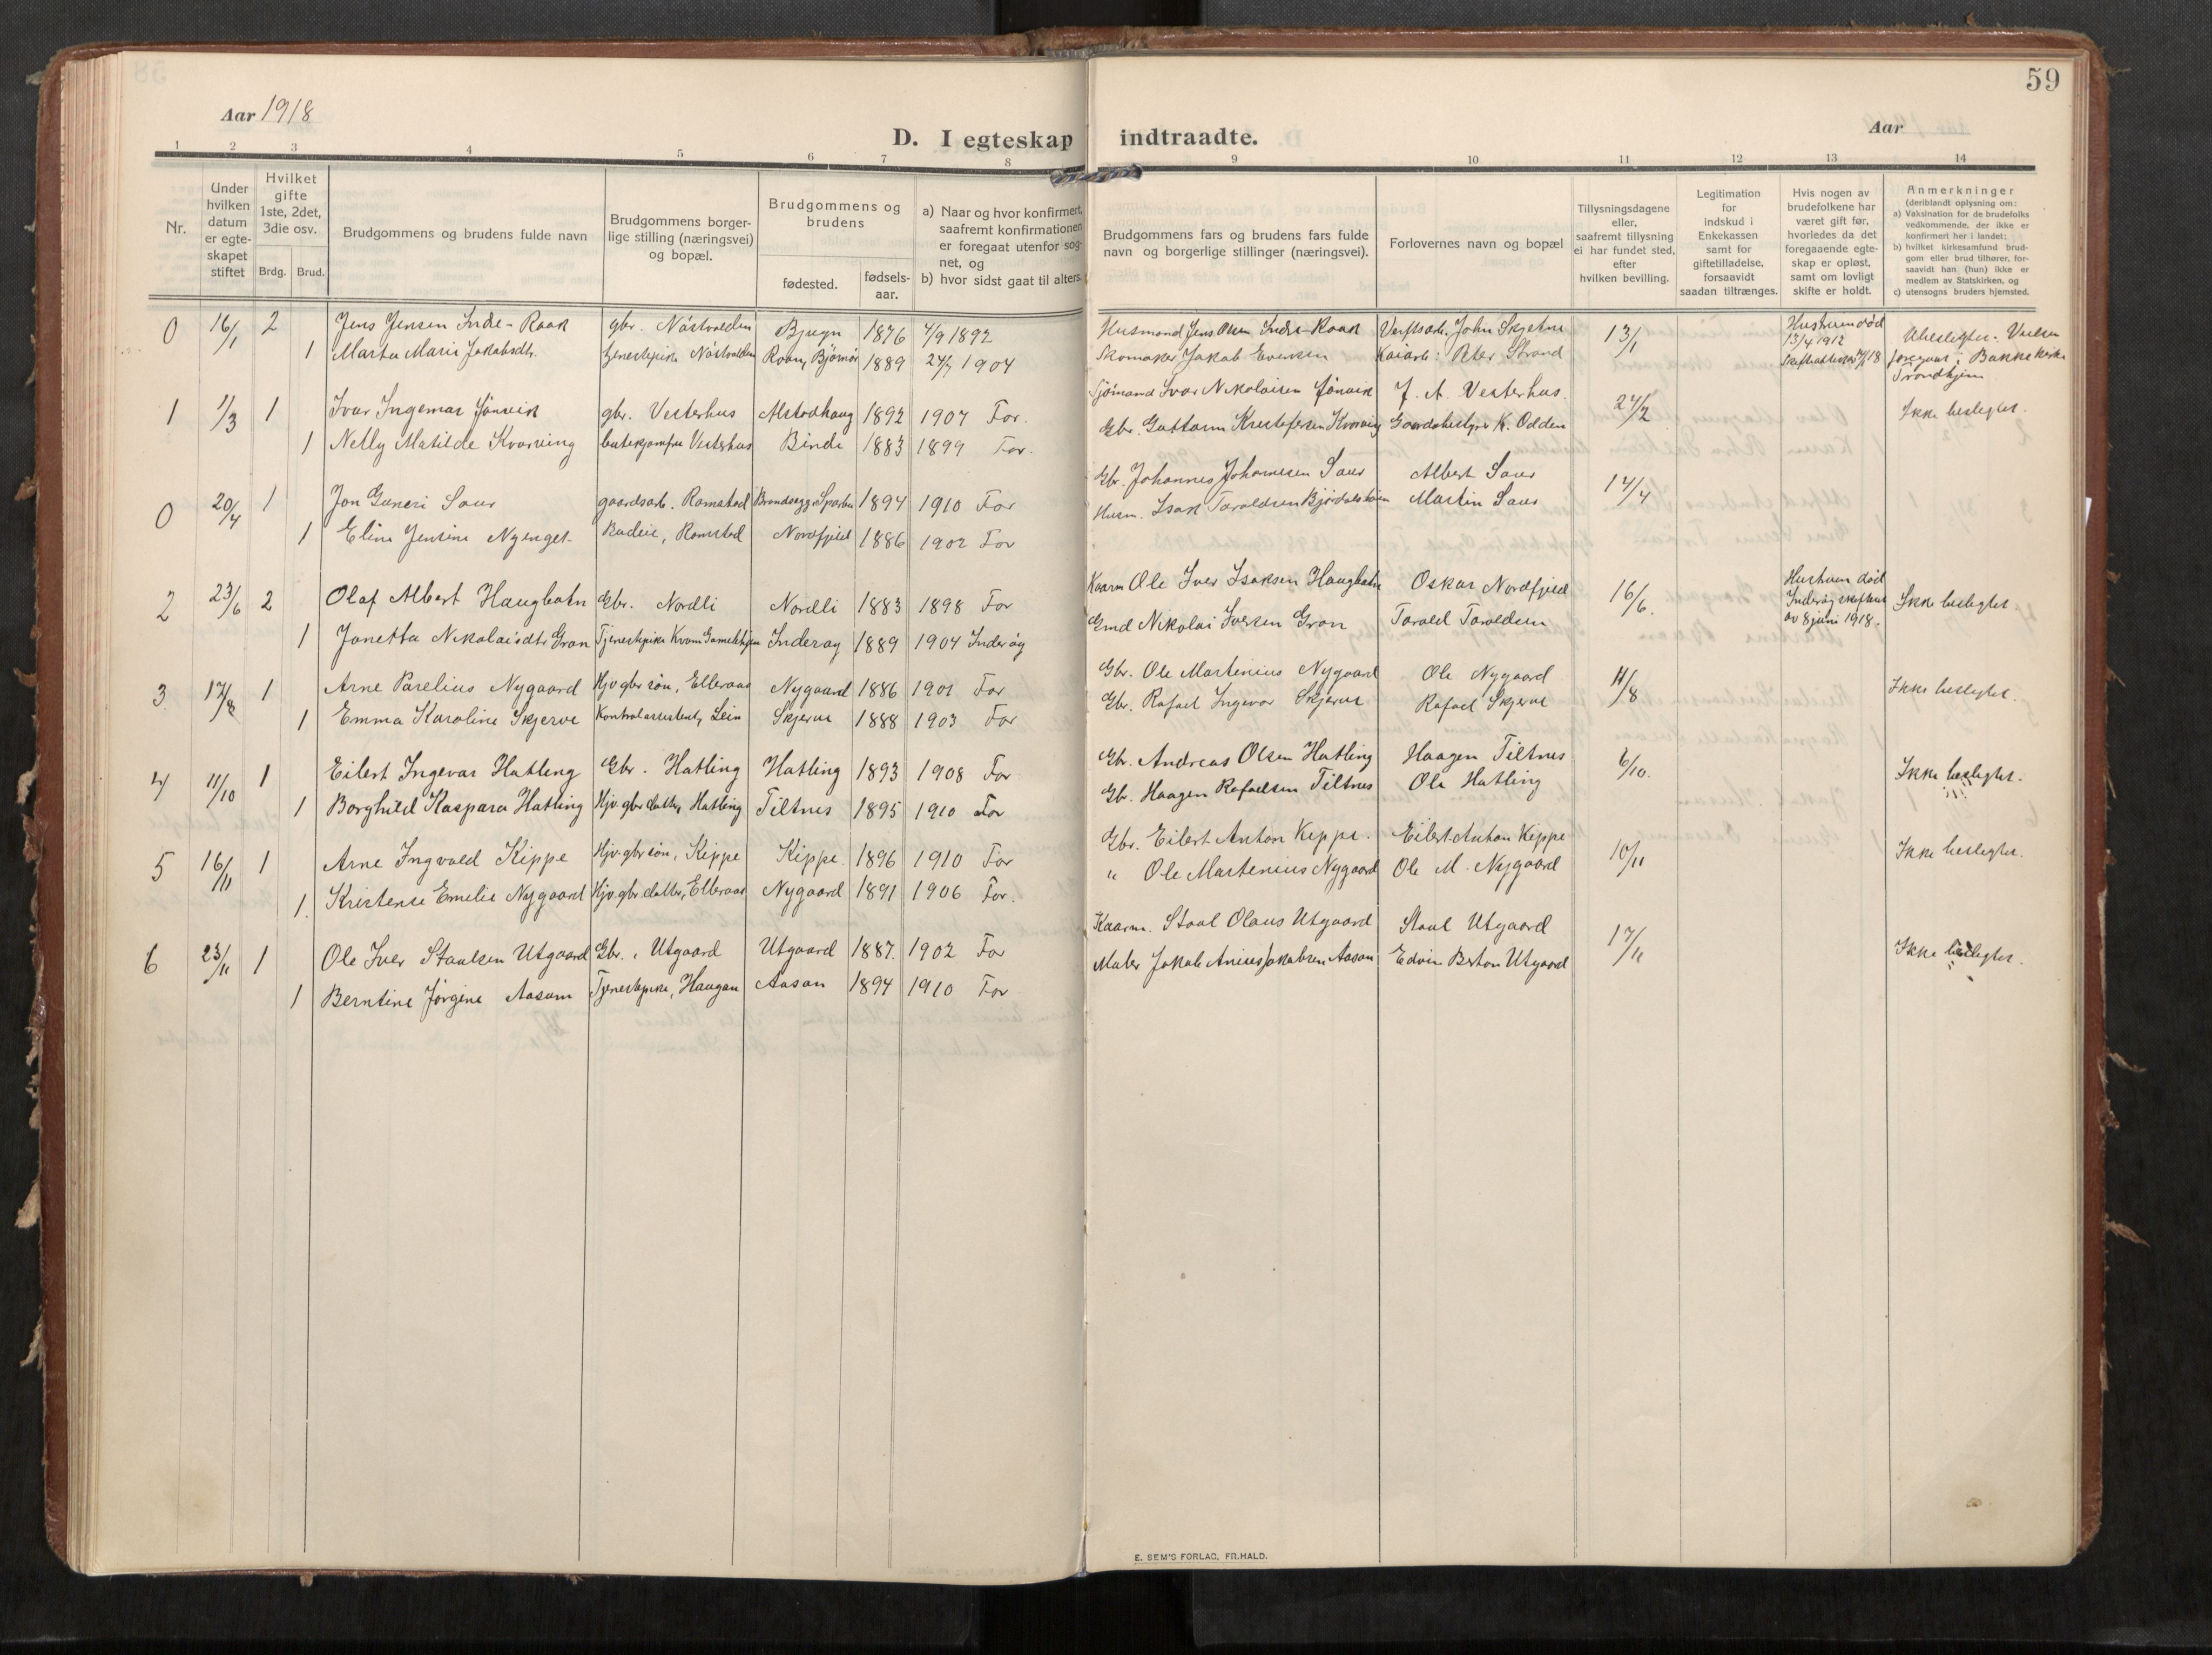 59
Aar 1918
Aar
D. I egteskap indtraadte.
1 2 3 4 5 6 7 8 9 10 11 12 13 14
Nr.
Under hvilken datum er egteskapet stiftet
Hvilket gifte 1ste, 2det, 3die osv.
Brdg. Brud.
Brudgommens og brudens fulde navn
Brudgommens borgerlige stilling (næringsvei) og bopæl.
Brudgommens og brudens
fødested.
fødselsaar.
a) Naar og hvor konfirmert, saafremt konfirmationen er foregaat utenfor sognet, og
b) hvor sidst gaat til alters.
Brudgommens fars og brudens fars fulde navn og borgerlige stillinger (næringsvei).
Forlovernes navn og bopæl
Tillysningsdagene eller, saafremt tillysning ei har fundet sted, efter hvilken bevilling.
Legitimation for indskud i Enkekassen samt for giftetilladelse, forsaavidt saadan tiltrænges.
Hvis nogen av brudefolkene har været gift før, hvorledes da det foregaaende egteskap er opløst, samt om lovligt skifte er holdt.
Anmerkninger
(deriblandt oplysning om:
a) Vaksination for de brudefolks vedkommende, der ikke er konfirmert her i landet;
b) hvilket kirkesamfund brudgom eller brud tilhører, forsaavidt han (hun) ikke er medlem av Statskirken, og
c) utensogns bruders hjemsted.
0 16/1 2 Jens Jensen Indre-Raak gbr. Nöstvolden Bjugn 1876 4/9 1892 Husmand Jens Olsen Indre-Raak Verftsarb. John Skjetne 13/1 Hustruen död 13/4 1912
1 Marta Marie Jakobsdt. tjenestepike Nöstvolden Roan, Bjørnør 1889 24/7 1904 Skomaker Jakob Evensen Kaiarb: Peter Strand Bakke kirke Trondhjem
1 1/3 1 Ivar Ingemar Jönvik gbr. Vesterhus Alstadhaug 1892 1907 For. Sjömand Ivar Nikolaisen Jönvik J. A. Vesterhus. 24/2 Ikke beslegtet.
1 Nelly Matilde Kvarving Vesterhus Binde 1883 1899 For. Gbr. Guttorm Kristofersen Kvarving Gaardsbestyrer K. Odden
0 20/4 1 Jon Guneri Saur gaardsarb. Ramstad Sparbu 1894 1910 For Gbr. Johannes Johannesen Saur Albert Saur 14/4
1 Eline Jensine Nyenget Budeie, Ramstad Nordfjeld 1886 1902 For Husm. Isak Taraldsen Martin Saur
2 23/6 2 Olaf Albert Haugbotn Gbr. Nordli Nordli 1883 1898 For Kaarm Ole Iver Isaksen Haugbotn Oskar Nordfjeld 16/6. Hustruen död Inderøy skifteret av 8 juni 1918. Ikke beslegtet.
1 Jonetta Nikolaisdt. Gran Tjenestepike Kvam Inderøy 1889 1904 Inderøy Gmd Nikolai Iversen Gran Tarald Taraldsen
3 17/8 1 Arne Parelius Nygaard Hjv. gbr. søn, Elberaas Nygaard 1886 1901 For Gbr. Ole Martenius Nygaard Ole Nygaard 11/8 Ikke beslegtet.
1 Emma Karoline Skjerve Kontrolassistent, Lein Skjerve 1888 1903 For Gbr. Rafael Ingevar Skjerve Rafael Skjerve
4 11/10 1 Eilert Ingevar Hatling Gbr. Hatling Hatling 1893 1908 For Gbr. Andreas Olsen Hatling Haagen Tiltnes 6/10. Ikke beslegtet.
1 Borghild Kaspara Hatling Hjv. gbr datter, Hatling Tiltnes 1895 1910 For Gb. Haagen Rafaelsen Tiltnes Ole Hatling
5 16/11 1 Arne Ingvald Kippe Hjv. gbr søn, Kippe Kippe 1896 1910 For Gbr. Eilert Anton Kippe. Eilert Anton Kippe 10/11 Ikke beslegtet.
1. Kristense Emelie Nygaard Hjv. gbr. datter, Elberaas Nygaard 1891 1906 For. " Ole Martenius Nygaard Ole M. Nygaard
6 23/11 1 Ole Iver Staalsen Utgaard Gbr., Utgaard Utgaard 1887. 1902 For Kaarm. Staal Olaus Utgaard Staal Utgaard 17/11 Ikke beslegtet.
1 Berntine Jørgine Aasum Tjenestepike, Haugan Aasan 1894 1910 For Maler Jakob Jakobsen Aasan Edvin Berton Utgaard
E. SEM'S FORLAG, FR.HALD.